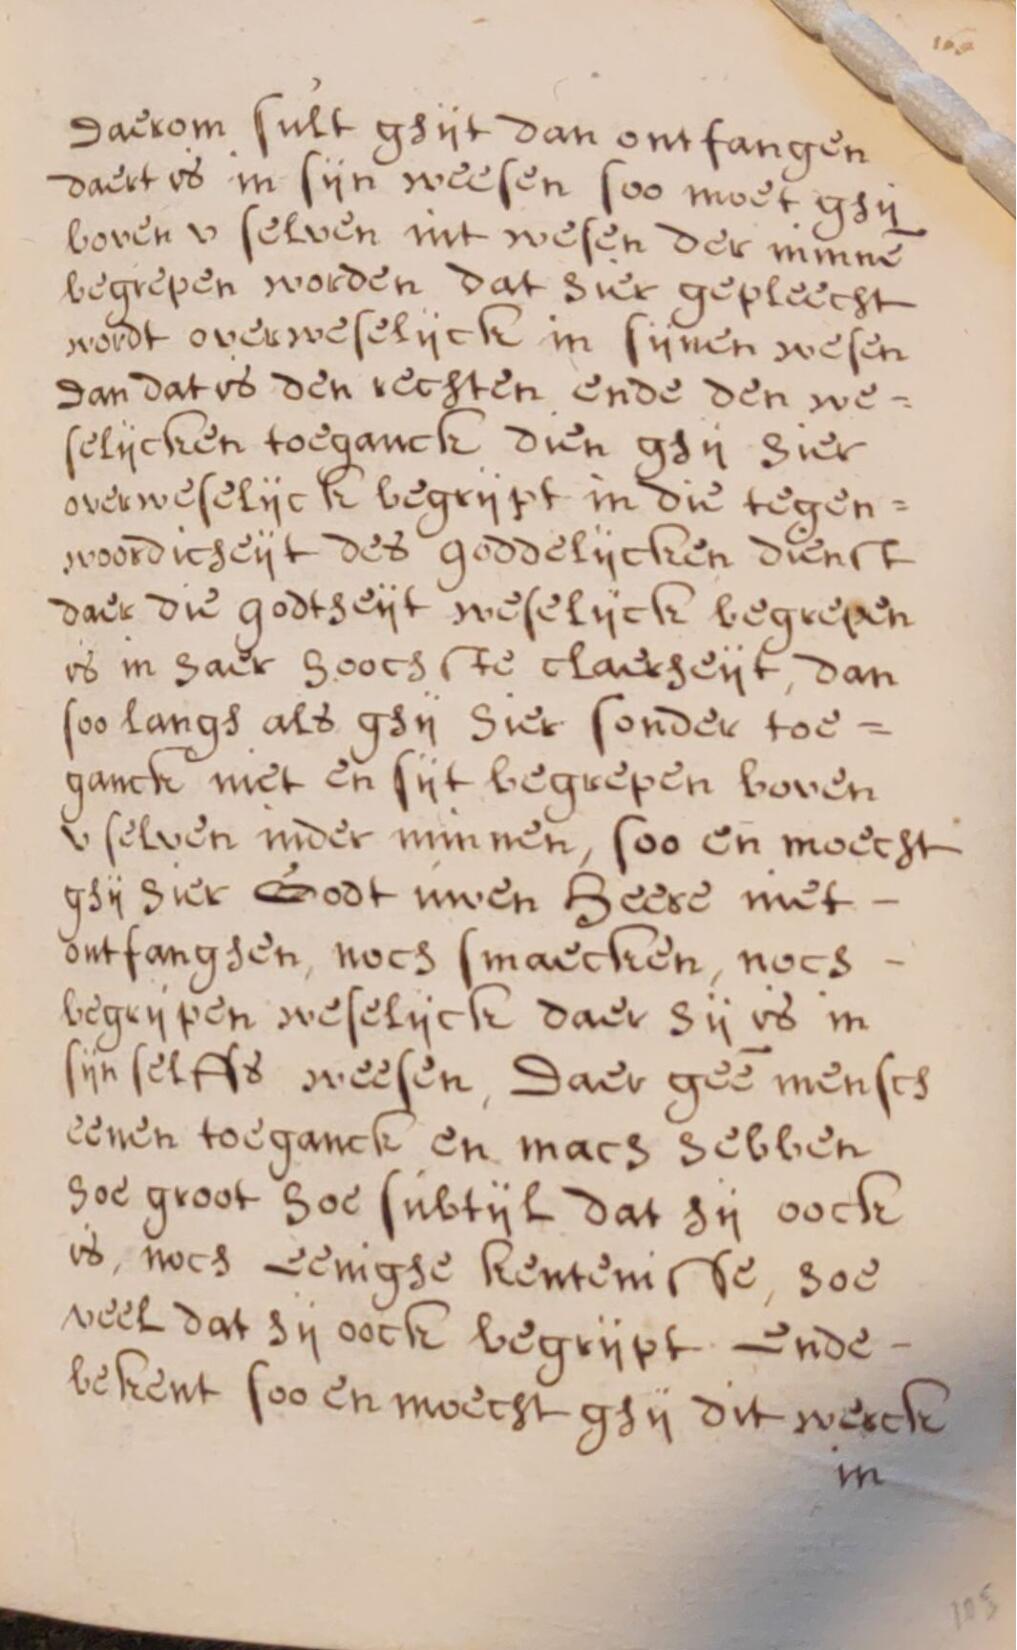 Daerom sult ghijt dan ontfangen
daert is in sijn weesen soo moet ghij
boven v selven int wesen der minnē
begrepen worden dat hier gepleecht
wordt overweselijck in sijnen wesen
Dan dat is den rechten ende den we =
selijcken toeganck dien ghij hier
overweselijck begrijpt in die tegen =
woordicheijt des goddelijcken dienst
daer die godtheijt weselijck begrepen
is in haer hoochste claerheijt, dan
soo langh als ghij hier sonder toe =
ganck niet en sijt begrepen boven
v selven inder minnen, soo en moecht
ghij hier Godt uwen Heere niet -
ontfanghen, noch smaecken, noch -
begrijpen weselijck daer hij is in
sijn selffs weesen, Daer geē mensch
eenen toeganck en mach hebben
hoe groot hoe subtijl dat hij oock
is, noch eenighe kentenisse, hoe
veel dat hij oock begrijpt ende -
bekent soo en moecht ghij dit werck
in
105